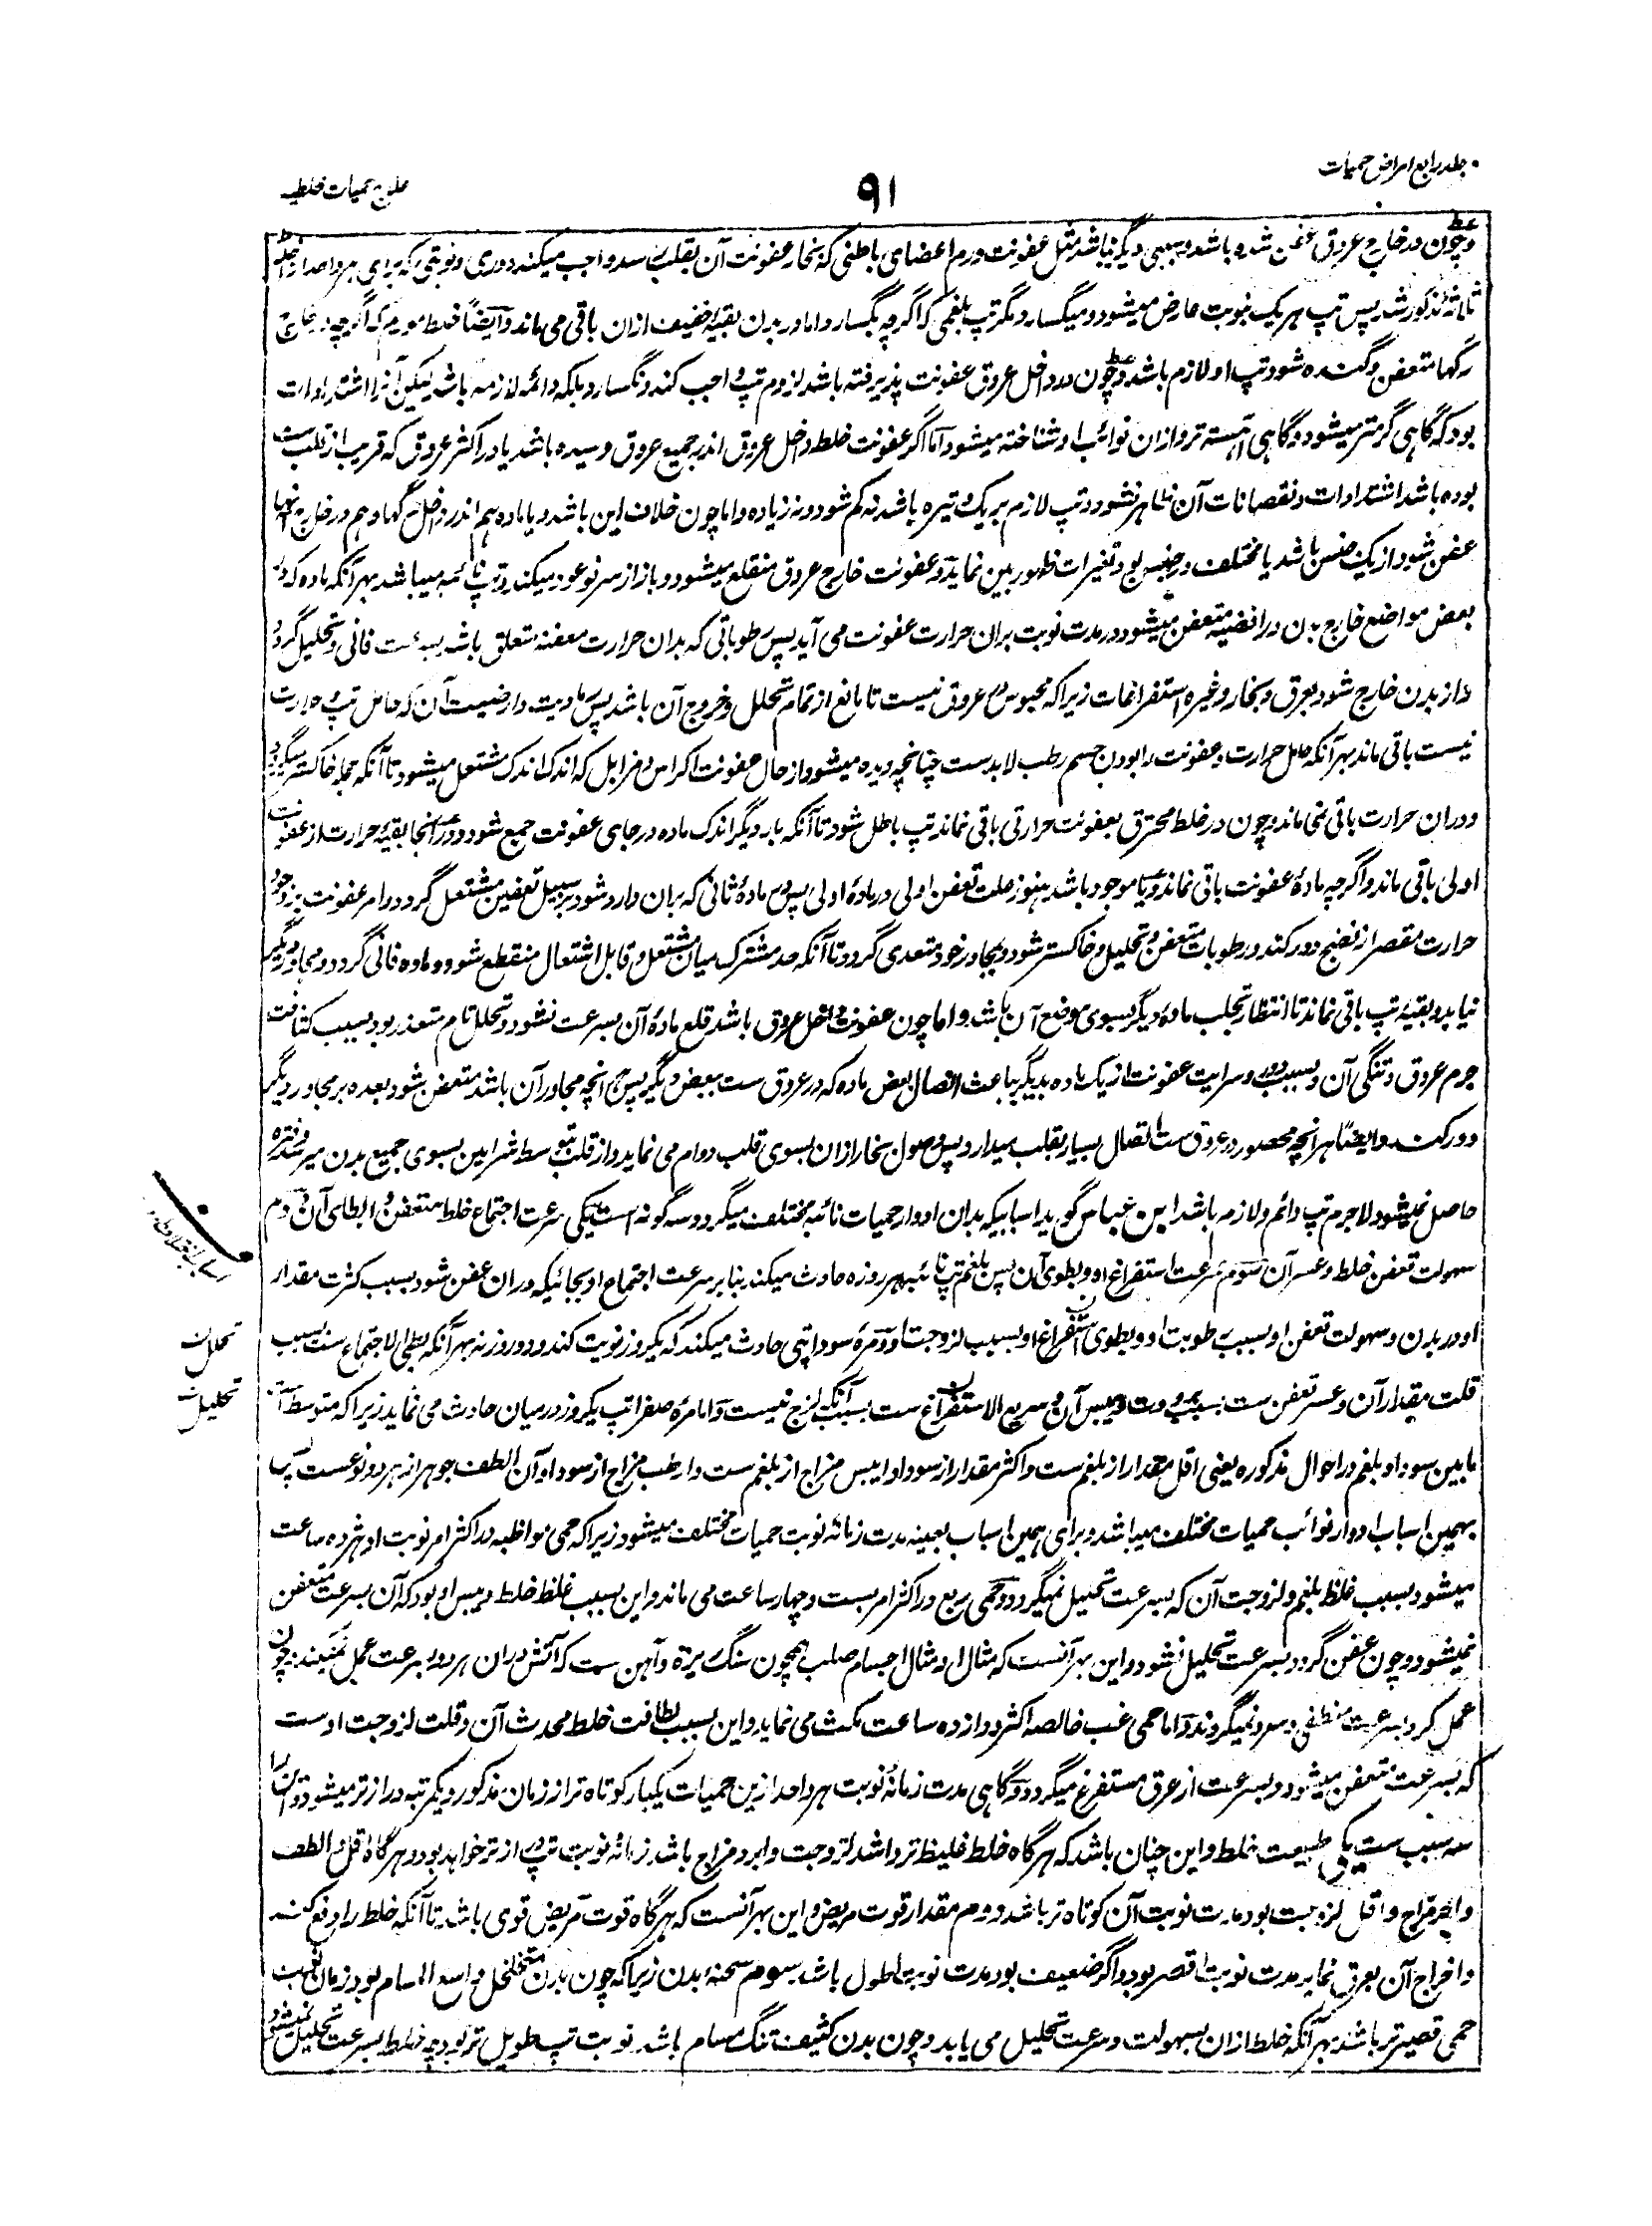 جلد رابع امراض حمیات
۹۱
علاج حمیات خلطیه
و چون در خارج عروق عفن شده باشد و سببی دیگر نباشد مثل عفونت ورم اعضای باطنی که بخار عفونت آن بقلب رسد واجب میکند دوری و نوبتی که برای هر واحد از اخلاط
ثلثه مذکور شد پس تپ هر یک بنوبت عارض میشود و میگسارد مگر تپ بلغمی که اگرچه بگسارد اما در بدن بقیه خفیف ازان باقی می ماند و ایضاً خلط مورم که اگرچه در خارج
رگها متعفن و گنده شود تپ او لازم باشد و چون در داخل عروق عفونت پذیرفته باشد لزوم تپ واجب کند و نگسارد بلکه دائمه لازمه باشد لیکن آنرا اشتدادات
بود که گاهی گرمتر میشود و گاهی آهسته تر و ازان نوائب او شناخته میشود اما اگر عفونت خلط داخل عروق اندر جمیع عروق رسیده باشد یا در اکثر عروق که قریب از قلب ست
بوده باشد اشتدادات و نقصانات آن ظاهر نشود و تپ لازم بر یک وتیره باشد نه کم شود و نه زیاده و اما چون خلاف این باشد و یا ماده هم اندر داخل رگها و هم در خارج آنها
عفن شود از یک جنس باشد یا مختلف در جنس بود تغیرات ظهور بین نماید و عفونت خارج عروق منقلع میشود و باز از سر نو عود میکند و تپ نائبه میباشد بهر آنکه ماده که در
بعض مواضع خارج بدن در افضیه متعفن میشود در مدت نوبت بران حرارت عفونت می آید پس رطوباتی که بدان حرارت معفنه متعلق باشد بسرعت فانی و تحلیل گردد
و از بدن خارج شود بعرق و بخار و غیره استفراغات زیرا که محبوس در عروق نیست تا مانع از تمام تحلل و خروج آن باشد پس مادیت و ارضیت آن که حامل تپ و حرارت
نیست باقی ماند بهر آنکه حامل حرارت و عفونت را بودن جسم رطب لابدست چنانچه دیده میشود از حال عفونت اکداس و مزابل که اندک اندک مشتعل میشود تا آنکه جمله خاکستر میگردد
و دران حرارت باقی نمی ماند و چون در خلط محترق بعفونت حرارتی باقی نماند تپ باطل شود تا آنکه بار دیگر اندک ماده در جای عفونت جمع شود و در آنجا بقیه حرارت از عفونت
اولی باقی ماند و اگرچه ماده عفونت باقی نماند و یا موجود باشد هنوز علت تعفن اولی در ماده اولی پس ماده ثانی که بران وارد شود بر سبیل تعفین مشتعل گردد و امر عفونت بر وجود
حرارت مقصر از نضج دور کند و رطوبات متعفن و تحلیل و خاکستر شود و بمجاور خود متعدی گردد تا آنکه حد مشترک میان مشتعل و قابل اشتعال منقطع شود و ماده فانی گردد و مجاور دیگر
نیابد و بقیه تپ باقی نماند تا انتظار تجلب ماده دیگر بسوی موضع آن باشد و اما چون عفونت داخل عروق باشد قلع ماده آن بسرعت نشود و تحلل تام متعذر بود بسبب کثافت
جرم عروق و تنگی آن و بسبب دور و سرایت عفونت از یک ماده بدیگر بباعث اتصال بعض ماده که در عروق ست ببعض دیگر پس آنچه مجاور آن باشد متعفن شود بعده بر مجاور دیگر
دور کند و ایضاً هر انچه محصور در عروق ست اتصال بسیار بقلب میدارد پس وصول بخار ازان بسوی قلب دوام می نماید و از قلب بتوسط شرایین بسوی جمیع بدن میرسد و فتره
حاصل نمیشود لاجرم تپ دائم و لازمه باشد ابن عباس گوید اسبابیکه بدان ادوار حمیات نائبه مختلف میگردد سه گونه است یکی سرعت اجتماع خلط متعفن و ابطای آن دوم
سهولت تعفن خلط و عسر آن سوم سرعت استفراغ او و بطوی آن پس بلغم تپ نائبه هر روزه حادث میکند بنابر سرعت اجتماع او بجائیکه دران عفن شود بسبب کثرت مقدار
او در بدن و سهولت تعفن او بسبب رطوبت او و بطوی استفراغ او بسبب لزوجت او و مره سودا تپی حادث میکند که یکروز نوبت کند و دو روز نه بهر آنکه بطی الاجتماع ست بسبب
قلت مقدار آن و عسر تعفن ست بسبب برودت و یبس آن و سریع الاستفراغ ست بسبب آنکه لزج نیست و اما مره صفرا تپ یکروز در میان حادث می نماید زیرا که متوسط ست
مابین سودا و بلغم در احوال مذکوره یعنی اقل مقدار از بلغم ست و اکثر مقدار از سودا و ایبس مزاج از بلغم ست و ارطب مزاج از سودا و آن الطف جوهر از هر دو نوعست پس
بهمین اسباب ادوار نوائب حمیات مختلف میباشد و برای همین اسباب بعینه مدت زمانه نوبت حمیات مختلف میشود زیرا که حمی مواظبه در اکثر امر نوبت او هژده ساعت
میشود بسبب غلظ بلغم و لزوجت آن که بسرعت تحلیل نمیگردد و حمی ربع در اکثر امر بست و چهار ساعت می ماند و این بسبب غلظ خلط و یبس او بود که آن بسرعت متعفن
نمیشود و چون عفن گردد بسرعت تحلیل نشود و این بهر آنست که مثال او مثال اجسام صلب همچون سنگ ریزه و آهن ست که آتش دران هر دو بسرعت عمل نمیکند و چون
عمل کرد بسرعت منطفی و سرد نمیگردند و اما حمی غب خالصه اکثر دوازده ساعت مکث می نماید و این بسبب لطافت خلط محدث آن و قلت لزوجت اوست
که بسرعت متعفن میشود و بسرعت از عرق مستفرغ میگردد و گاهی مدت زمانه نوبت هر واحد ازین حمیات یکبار کوتاه تر از زمان مذکور و یکمرتبه درازتر میشود و این را
سه سبب ست یکی طبیعت خلط و این چنان باشد که هرگاه خلط غلیظ تر و اشد لزوجت و ابرد مزاج باشد زمانه نوبت تپ درازتر خواهد بود و هرگاه اقل و الطف
و احر مزاج و اقل لزوجت بود مدت نوبت آن کوتاه تر باشد دوم مقدار قوت مریض و این بهر آنست که هرگاه قوت مریض قوی باشد تا آنکه خلط را دفع کند
و اخراج آن بعرق نماید مدت نوبت اقصر بود و اگر ضعیف بود مدت نوبت اطول باشد سوم سحنه بدن زیرا که چون بدن متخلخل و واسع المسام بود زمان نوبت
حمی قصیرتر باشد بهر آنکه خلط ازان بسهولت و سرعت تحلیل می یابد و چون بدن کثیف تنگ مسام باشد نوبت تپ طویل تر بود چه خلط بسرعت تحلیل نمیشود
تحلل ن
تحلیل ن